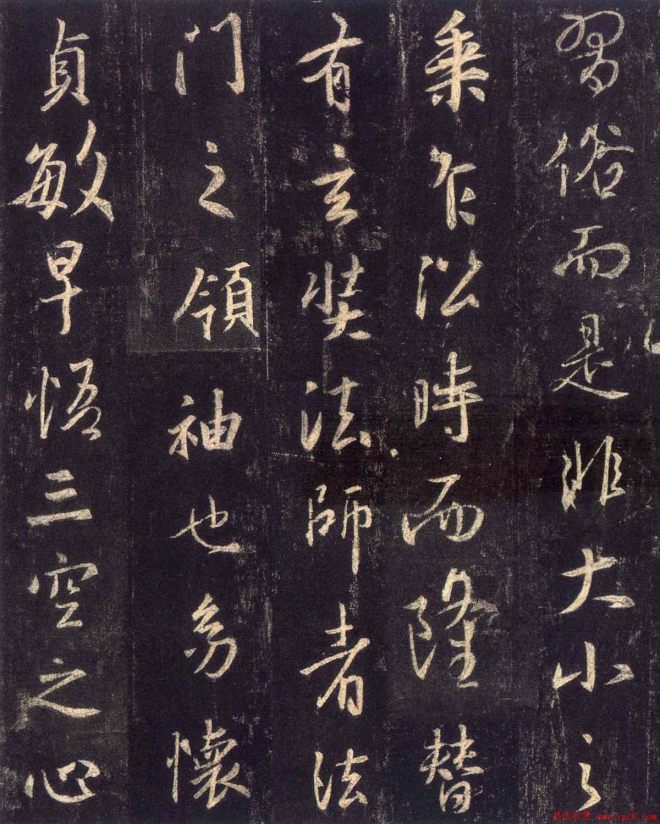 習俗而是非大小之
乘乍㳂時而隆替
有玄奘法師者法
門之領袖也幼懷
貞敏早悟三空之心